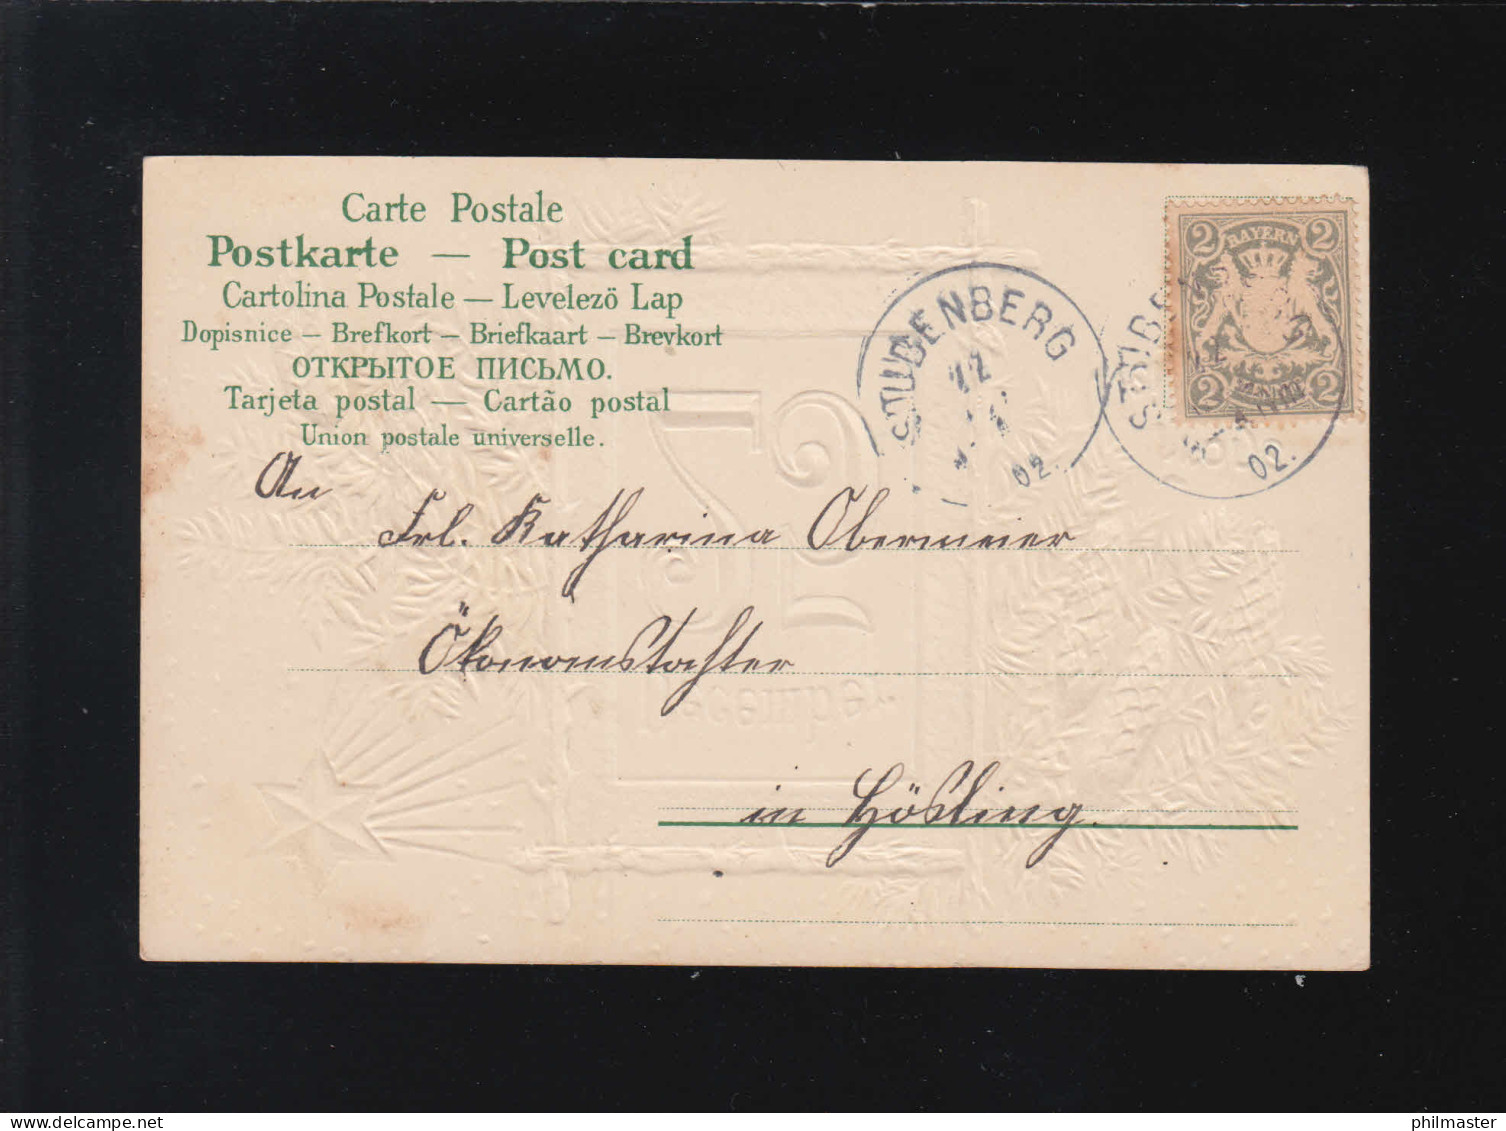 Carte Postale
Postkarte — Post card
Cartolina Postale — Levelezö Lap
Dopisnice — Brefkort — Briefkaart — Brevkort
ОТКРЫТОЕ ПИСЬМО.
Tarjeta postal — Cartão postal
Union postale universelle.
2 BAYERN 2
2 2
STUBENBERG
02.
02.
An
Frl. Katharina Obermeier
Ökonomstochter
in Hösling.
25
Decmbe
philmaster